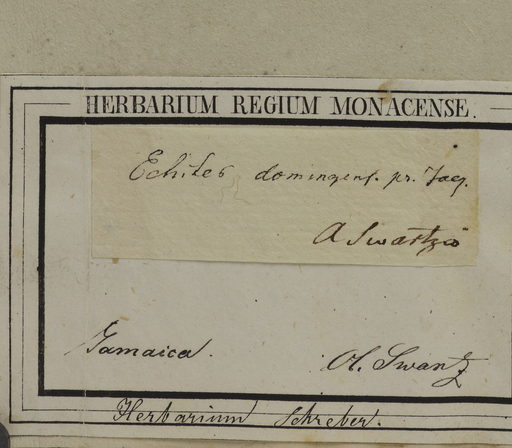 HERBARIUM REGIUM MONACENSE.
Echites domingens. pr. Jacq.
A Swartzio
Jamaica.
Ol. Swartz
Herbarium Schreber.